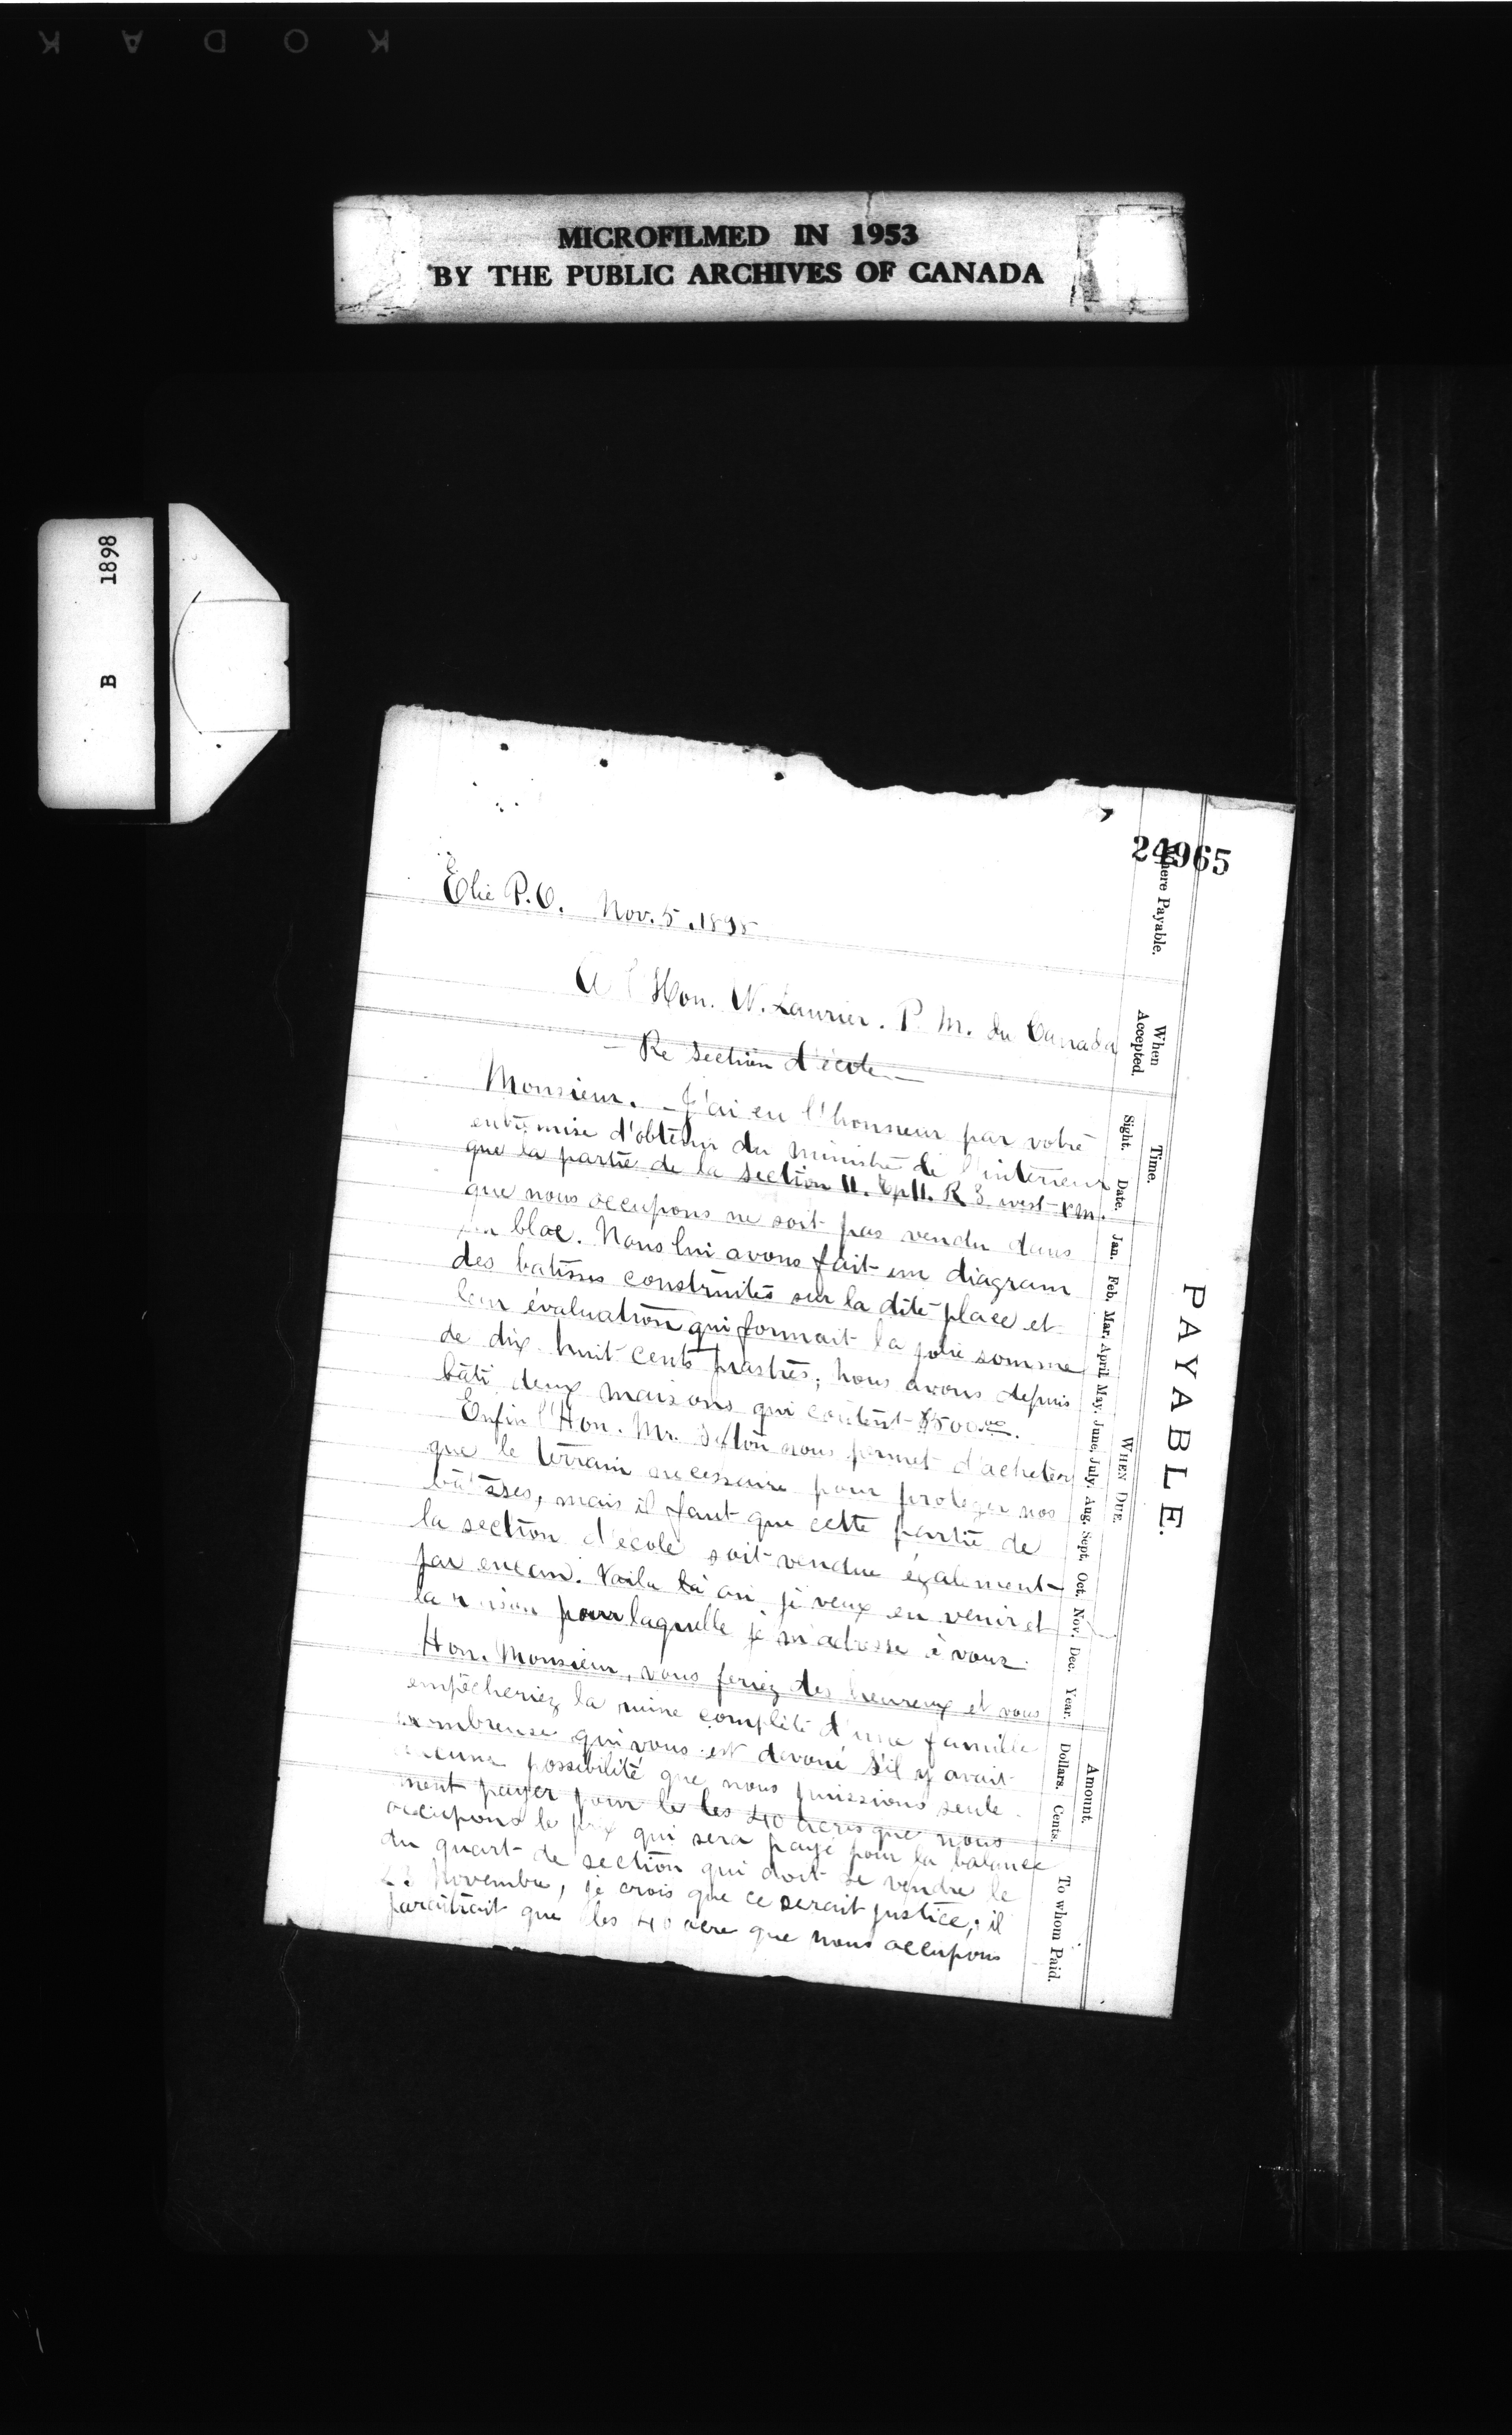 KODAK
MICROFILMED IN 1953
BY THE PUBLIC ARCHIVES OF CANADA
B 1898
24965
PAYABLE.
Where Payable.
When Accepted.
Time.
Sight. Date.
WHEN DUE.
Jan. Feb. Mar. April May. June. July. Aug. Sept. Oct. Nov. Dec. Year.
Amount.
Dollars. Cents.
To whom Paid.
Elie P.O. Nov. 5. 1898
A l'Hon. W. Laurier. P. M. du Canada
— Re section d'école —
Monsieur. — J'ai eu l'honneur par votre
entremise d'obtenir du ministre de l'interieur
que la partie de la section 11. Tp 11. R 3 west PM.
que nous occupons ne soit pas vendu dans
bloc. Nous lui avons fait un diagram
des batisses construites sur la dite place et
leur évaluation qui formait la jolie somme
de dix huit cents piastres; nous avons depuis
bâti deux maisons qui coutent $500.00.
Enfin l'Hon. Mr. Sifton nous permet d'acheter
que le terrain necessaire pour proteger nos
bâtisses, mais il faut que cette partie de
la section d'école soit vendue également
par encan. Voila là ou je veux en venir et
la raison pour laquelle je m'adresse à vous.
Hon. Monsieur, vous feriez des heureux et vous
empêcheriez la ruine complète d'une famille
nombreuse qui vous est dévoué s'il y avait
aucune possibilité que nous puissions seule-
ment payer pour le les 40 acres que nous
occupons le prix qui sera payé pour la balance
du quart de section qui doit se vendre le
Novembre, je crois que ce serait justice; il
paraîtrait que les 40 acre que nous occupons